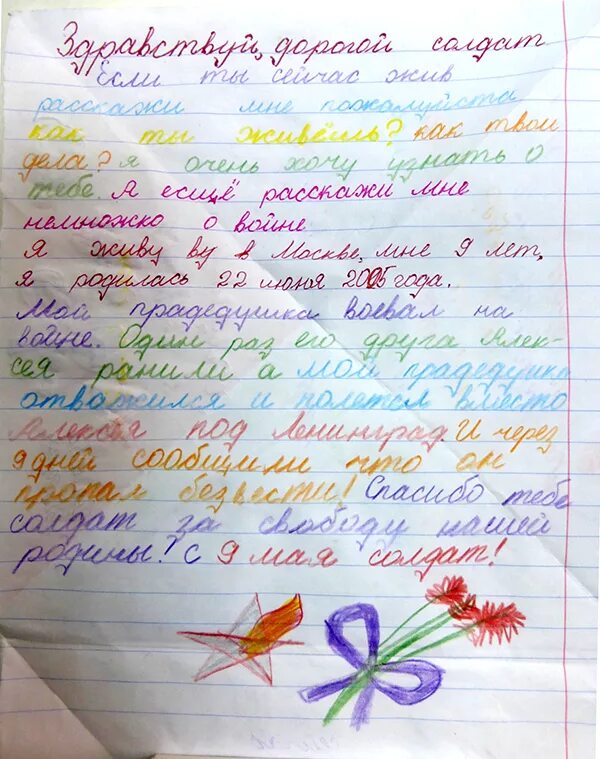 Здравствуй, дорогой солдат
Если ты сейчас жив
расскажи мне пожалуйста
как ты живёшь? как твои
дела? я очень хочу узнать о
тебе. А есщё расскажи мне
немножко о войне
Я живу ву в Москве, мне 9 лет,
я родилась 22 июня 2005 года.
Мой прадедушка воевал на
войне. Один раз его друга Алек-
сея ранили а мой прадедушка
отважился и полетел вместо
Алексея под Ленинград. И через
9 дней сообщили что он
пропал безвести! Спасибо тебе
солдат за свободу нашей
родины! С 9 мая солдат!